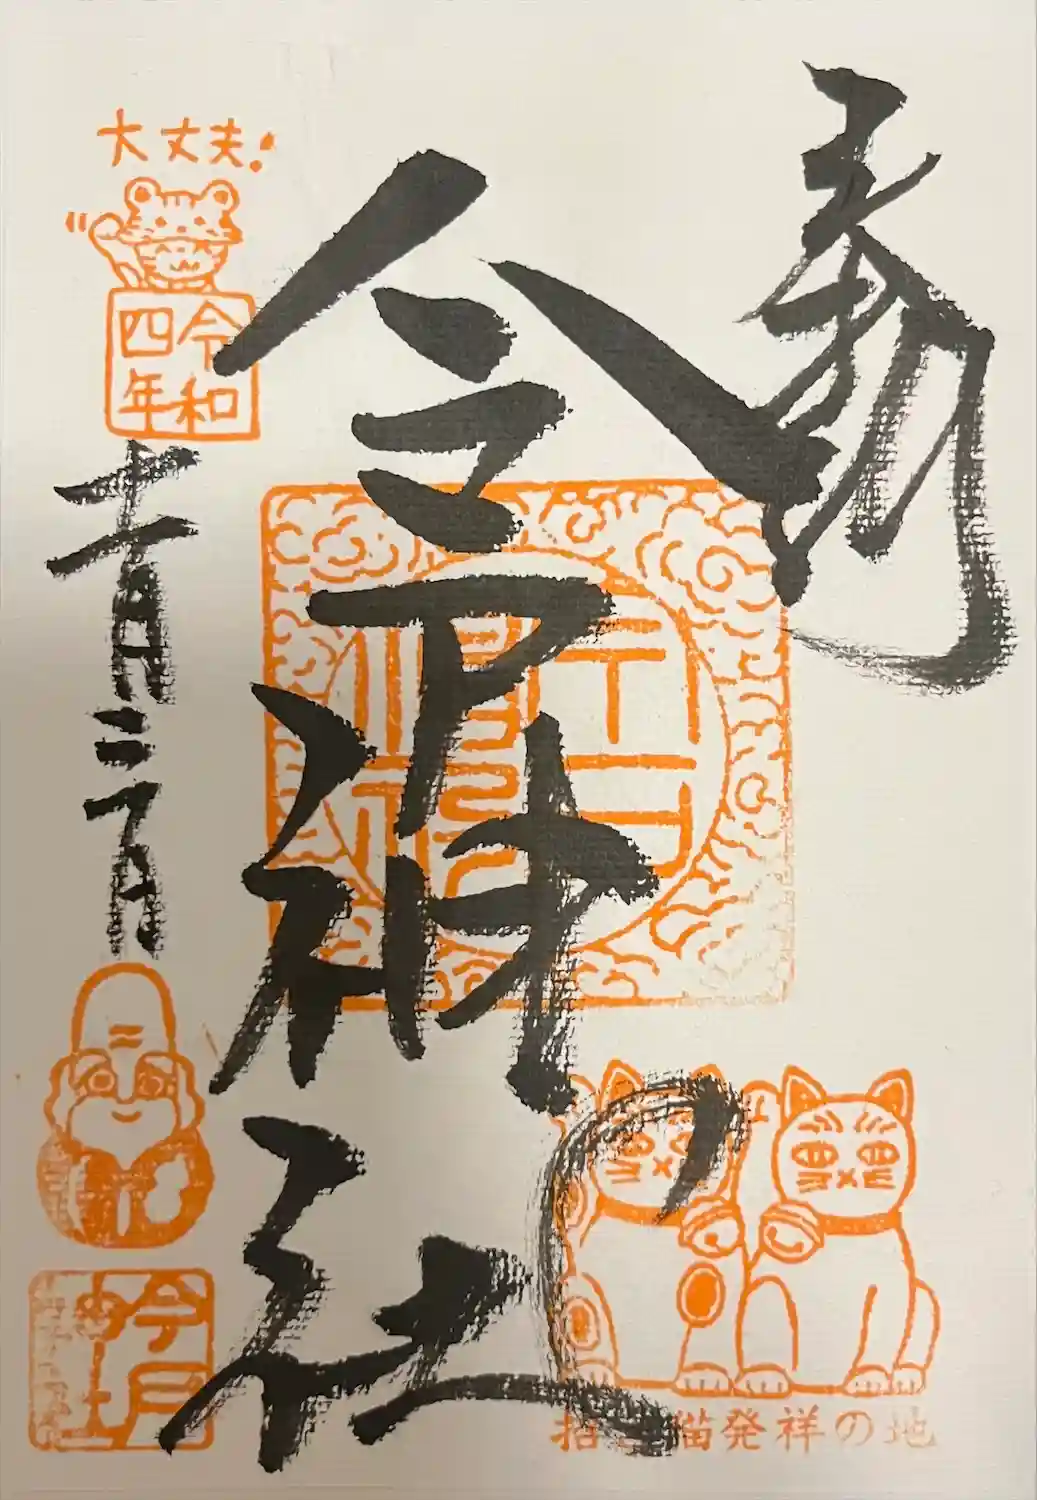 大丈夫!
令和
四年
十一月三日
今戸神社
今戸
神社
招き猫発祥の地